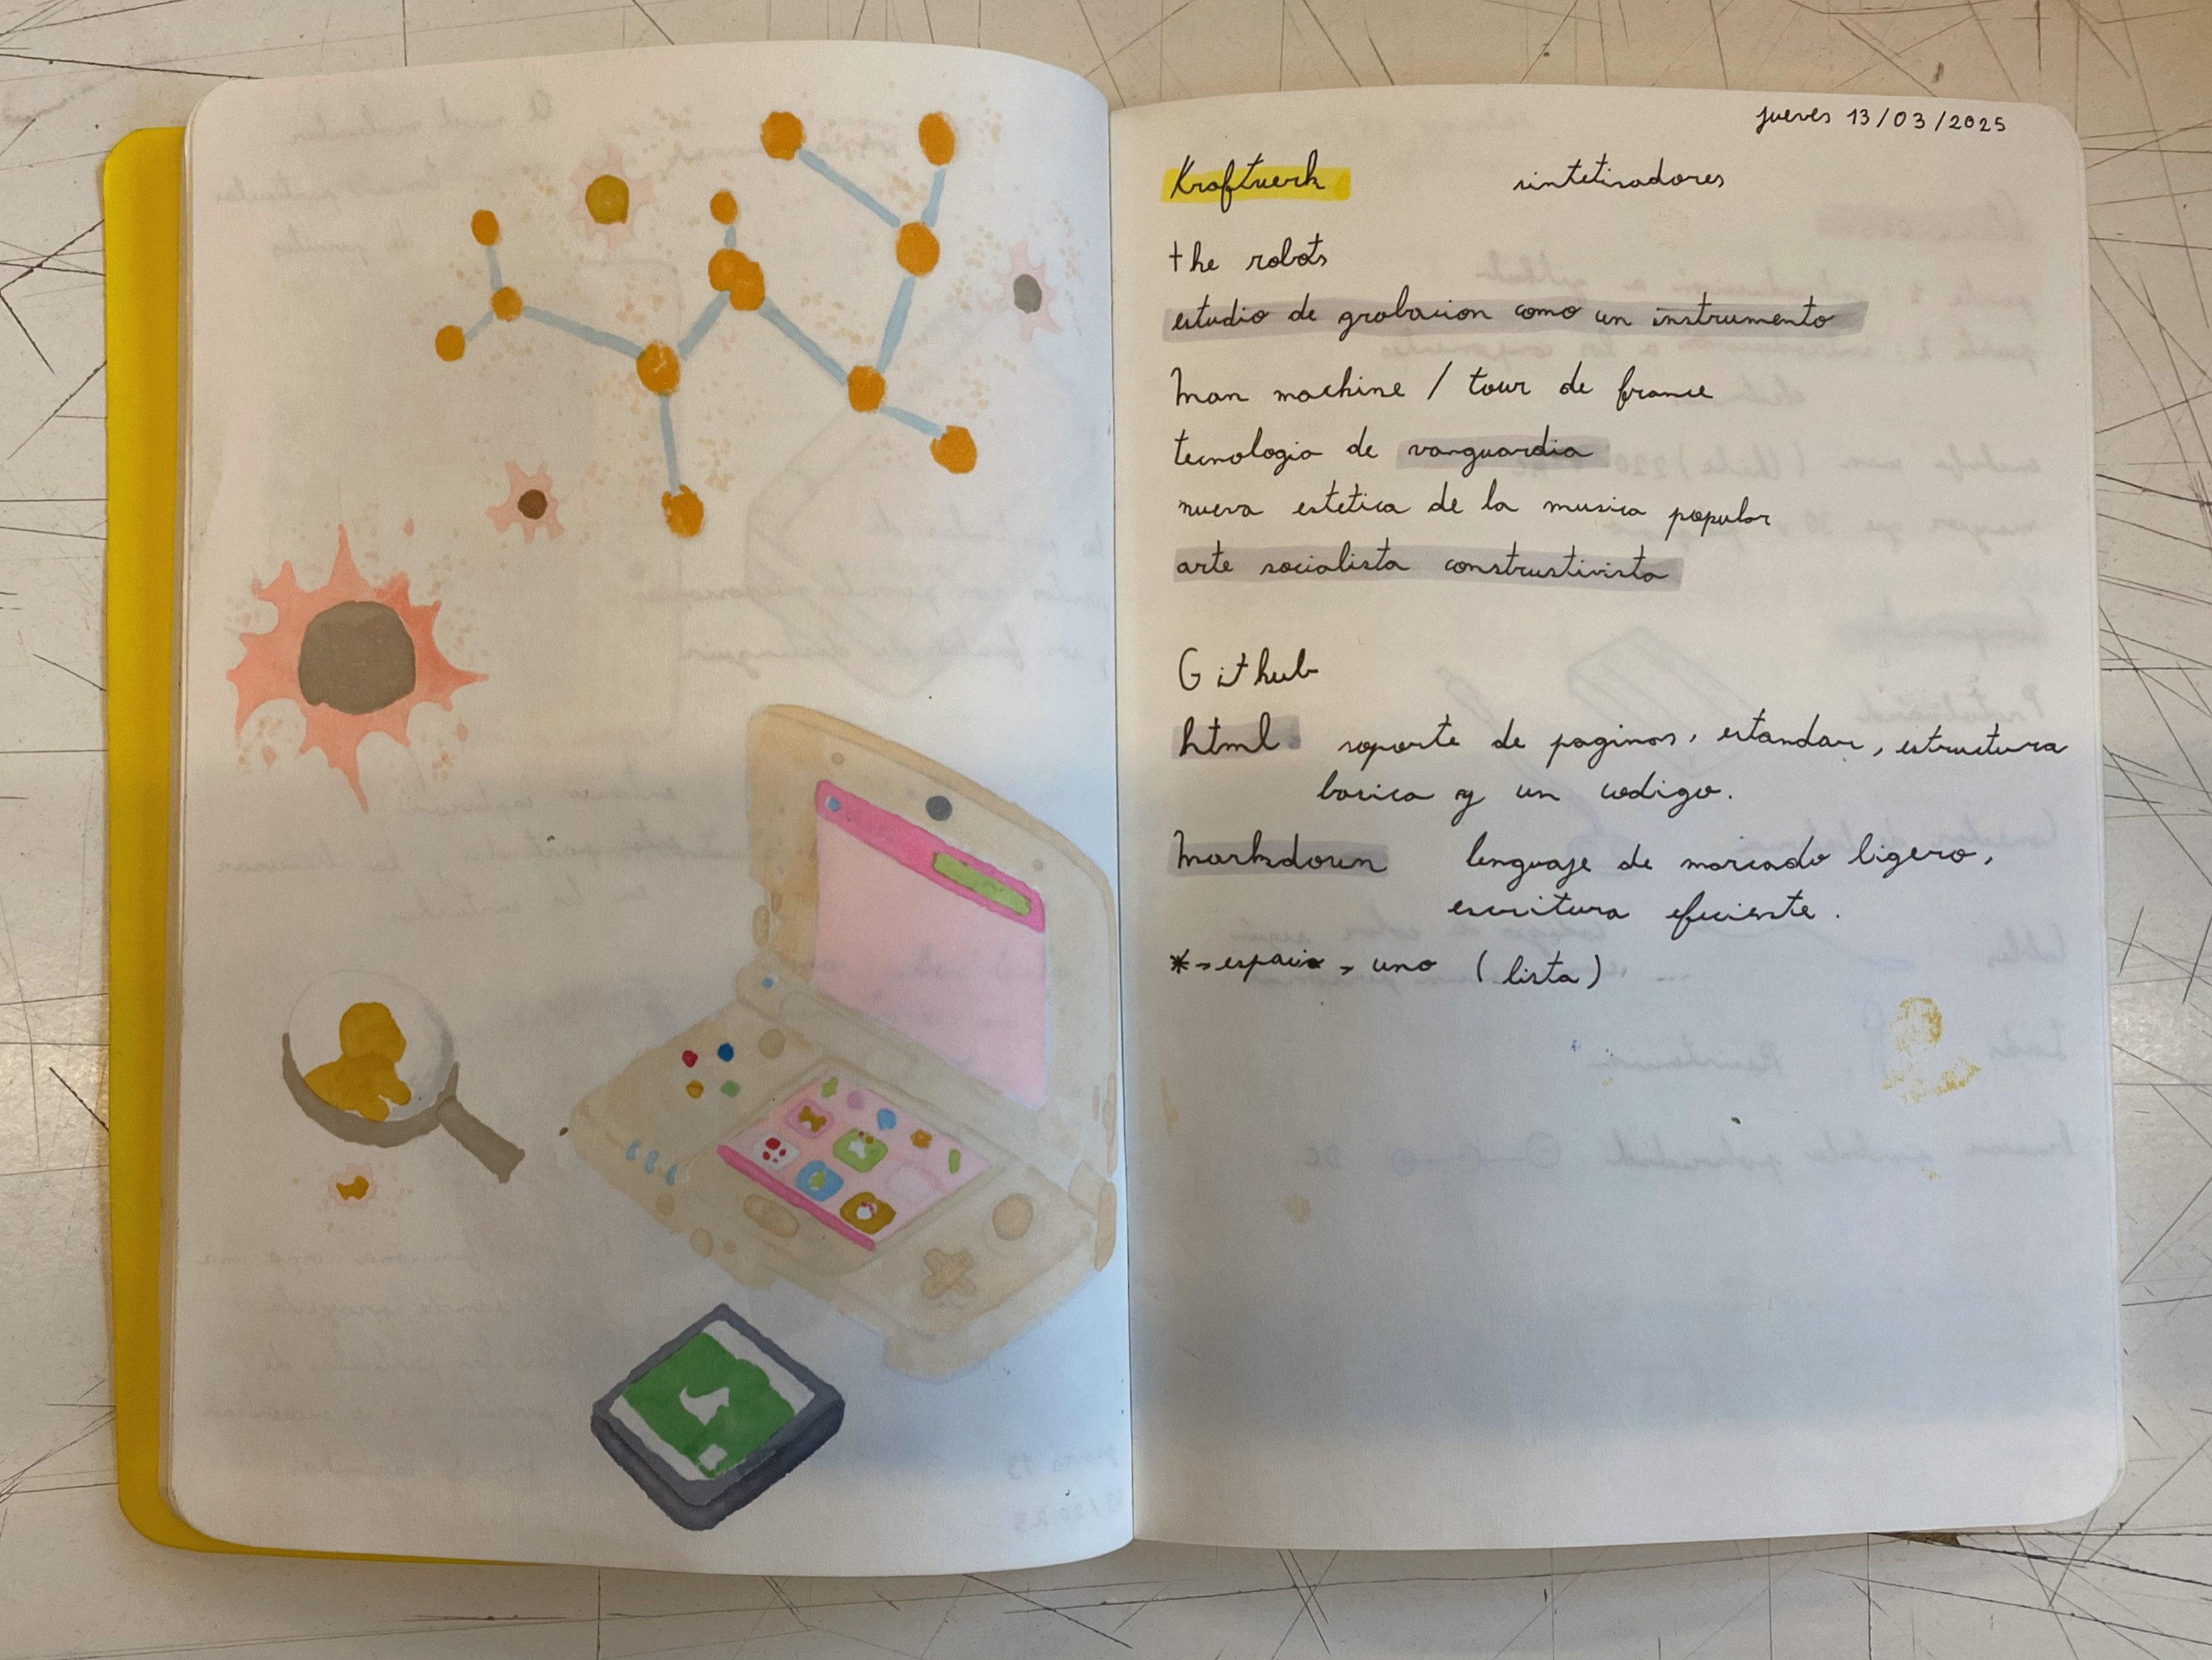 jueves 13/03/2025
Kraftwerk sintetisadores
the robots
estudio de grabacion como un instrumento
Man machine / tour de france
tecnologia de vanguardia
nueva estetica de la musica popular
arte socialista construstivista
Github
html soporte de paginas, estandar, estructura
basica y un codigo.
Markdown lenguaje de marcado ligero,
escritura eficiente.
*-espacio-uno (lista)